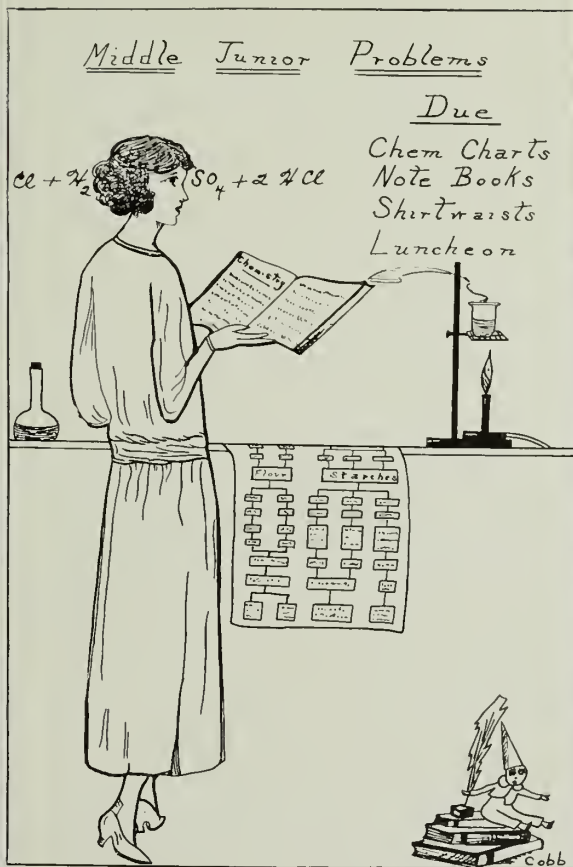 Middle Junior Problems
Due
Chem Charts
Note Books
Shirtwaists
Luncheon
Cl + H₂ SO₄ + 2 HCl
Chemistry
Flour Starches
Cobb